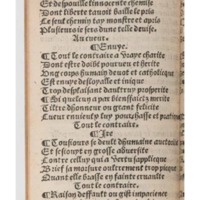 Et despouille linnocente chemise
Dont liberte tanoit baille le pris
Le seuf chemin tay monstre et apris
Plusieurs se sero dune telle devise.
Au cueur.
¶ Envye.
¶ Tout le contraire a vraye charite
Dont estre doibt pourveu et herite
Ung corps humain devot et catholique
Est envye desloyalle et inique
Trop desplaisant daultruy prosperite
¶ Si quelcun a par bien faictz merite
Tiltre dhonneur ou grant felicite
Cueur envieulx luy pourchasse et
Tout le contraire.
¶ Ire
¶ Tousiours se deult dhumaine
Et sesiouyt en grosse adversite
Contre celluy qui a vertu sapplique
Brief sa morsure oultrement pique
Quant elle blasme en faincte
Tout le contraire.
¶ Raison deffault ou gist impacience